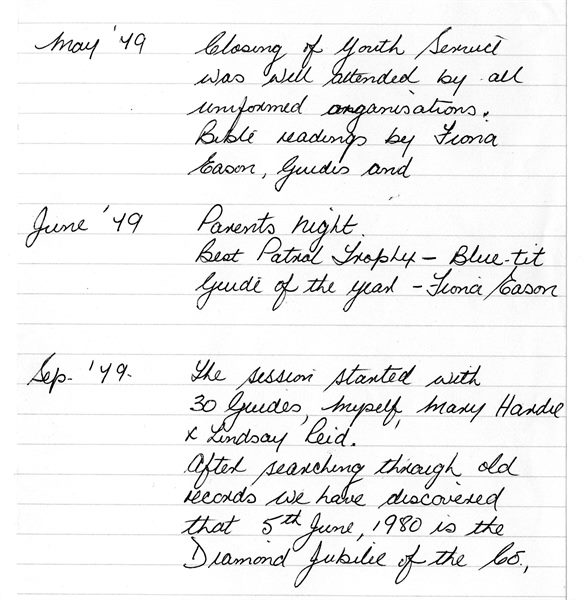 May '79 Closing of Youth Service
was well attended by all
uniformed organisations.
Bible readings by Fiona
Eason, Guides and
June '79 Parents Night.
Best Patrol Trophy – Blue-tit
Guide of the year – Fiona Eason
Sep. '79. The session started with
30 Guides, myself, Mary Hardie
& Lindsay Reid.
After searching through old
records we have discovered
that 5th June, 1980 is the
Diamond Jubilie of the Co.,